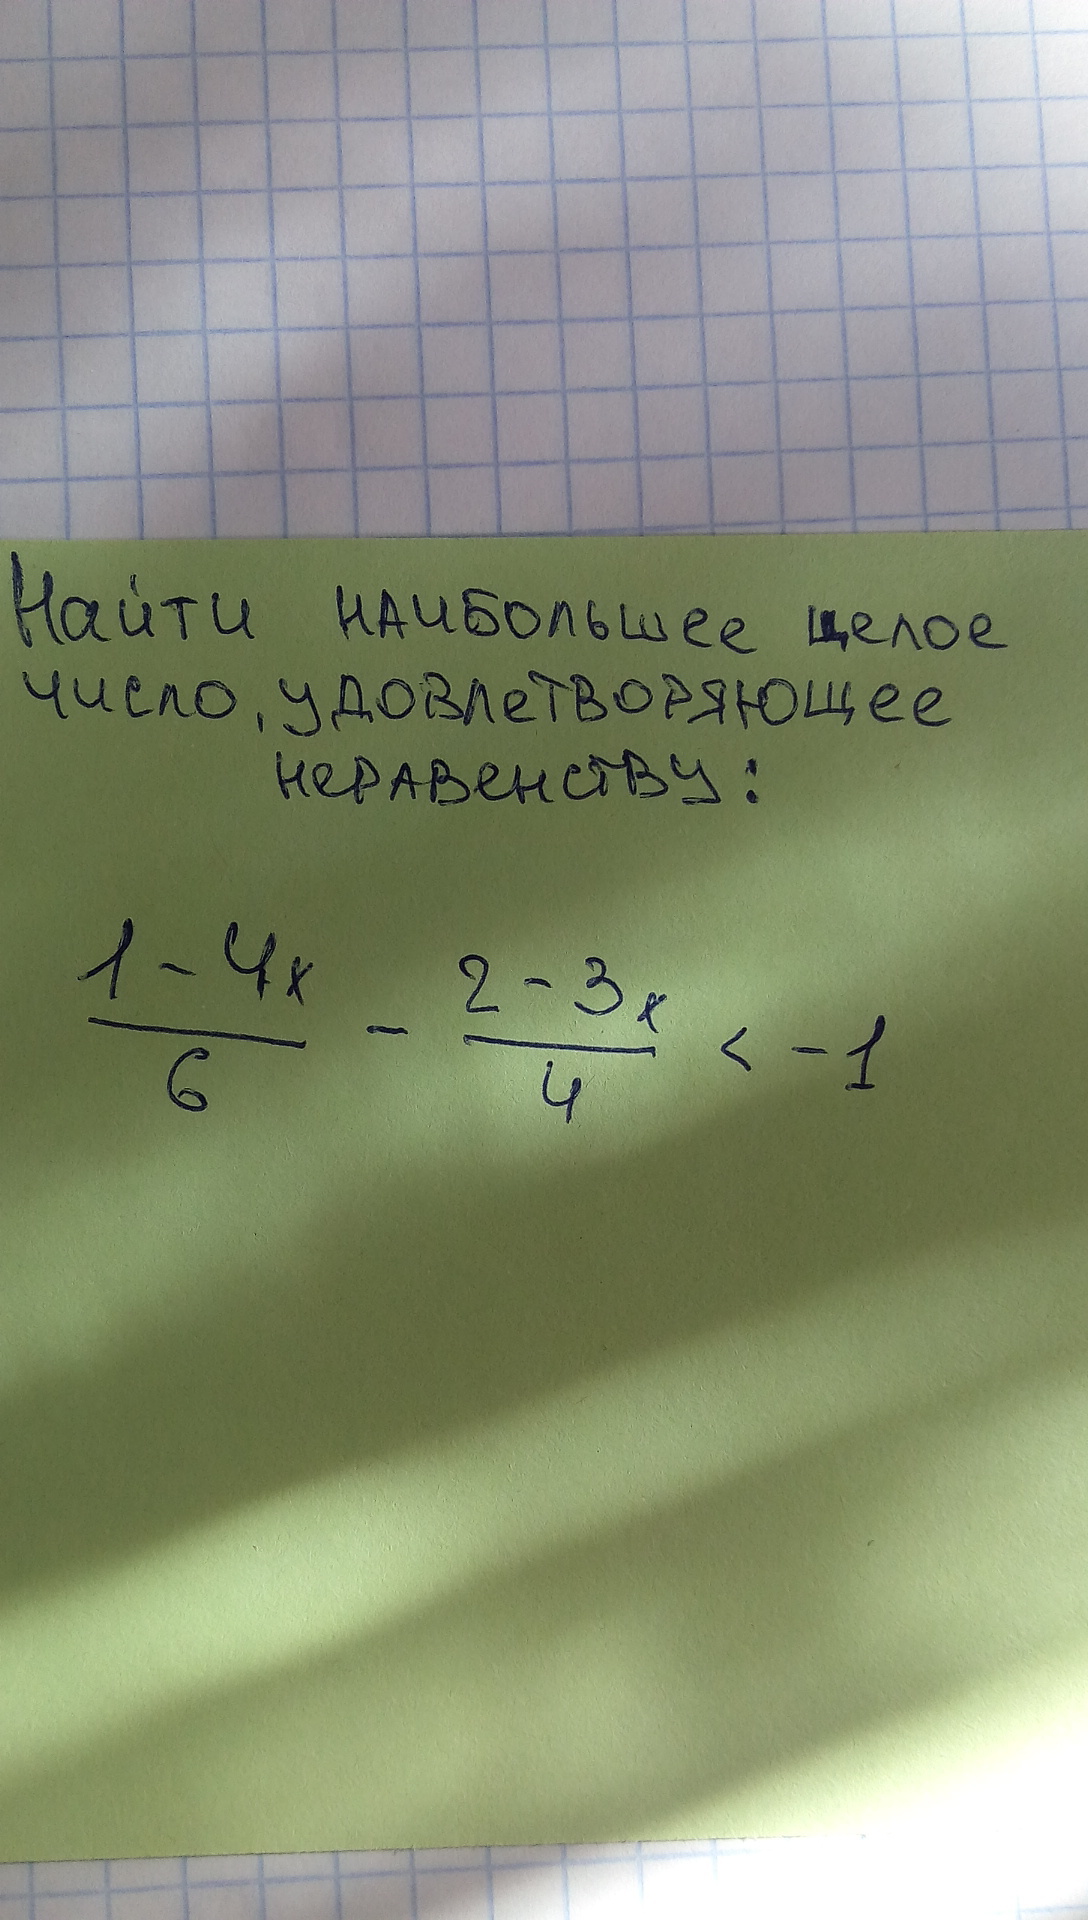 Найти наибольшее целое
число, удовлетворяющее
неравенству:
1-4x/6 - 2-3x/4 < -1